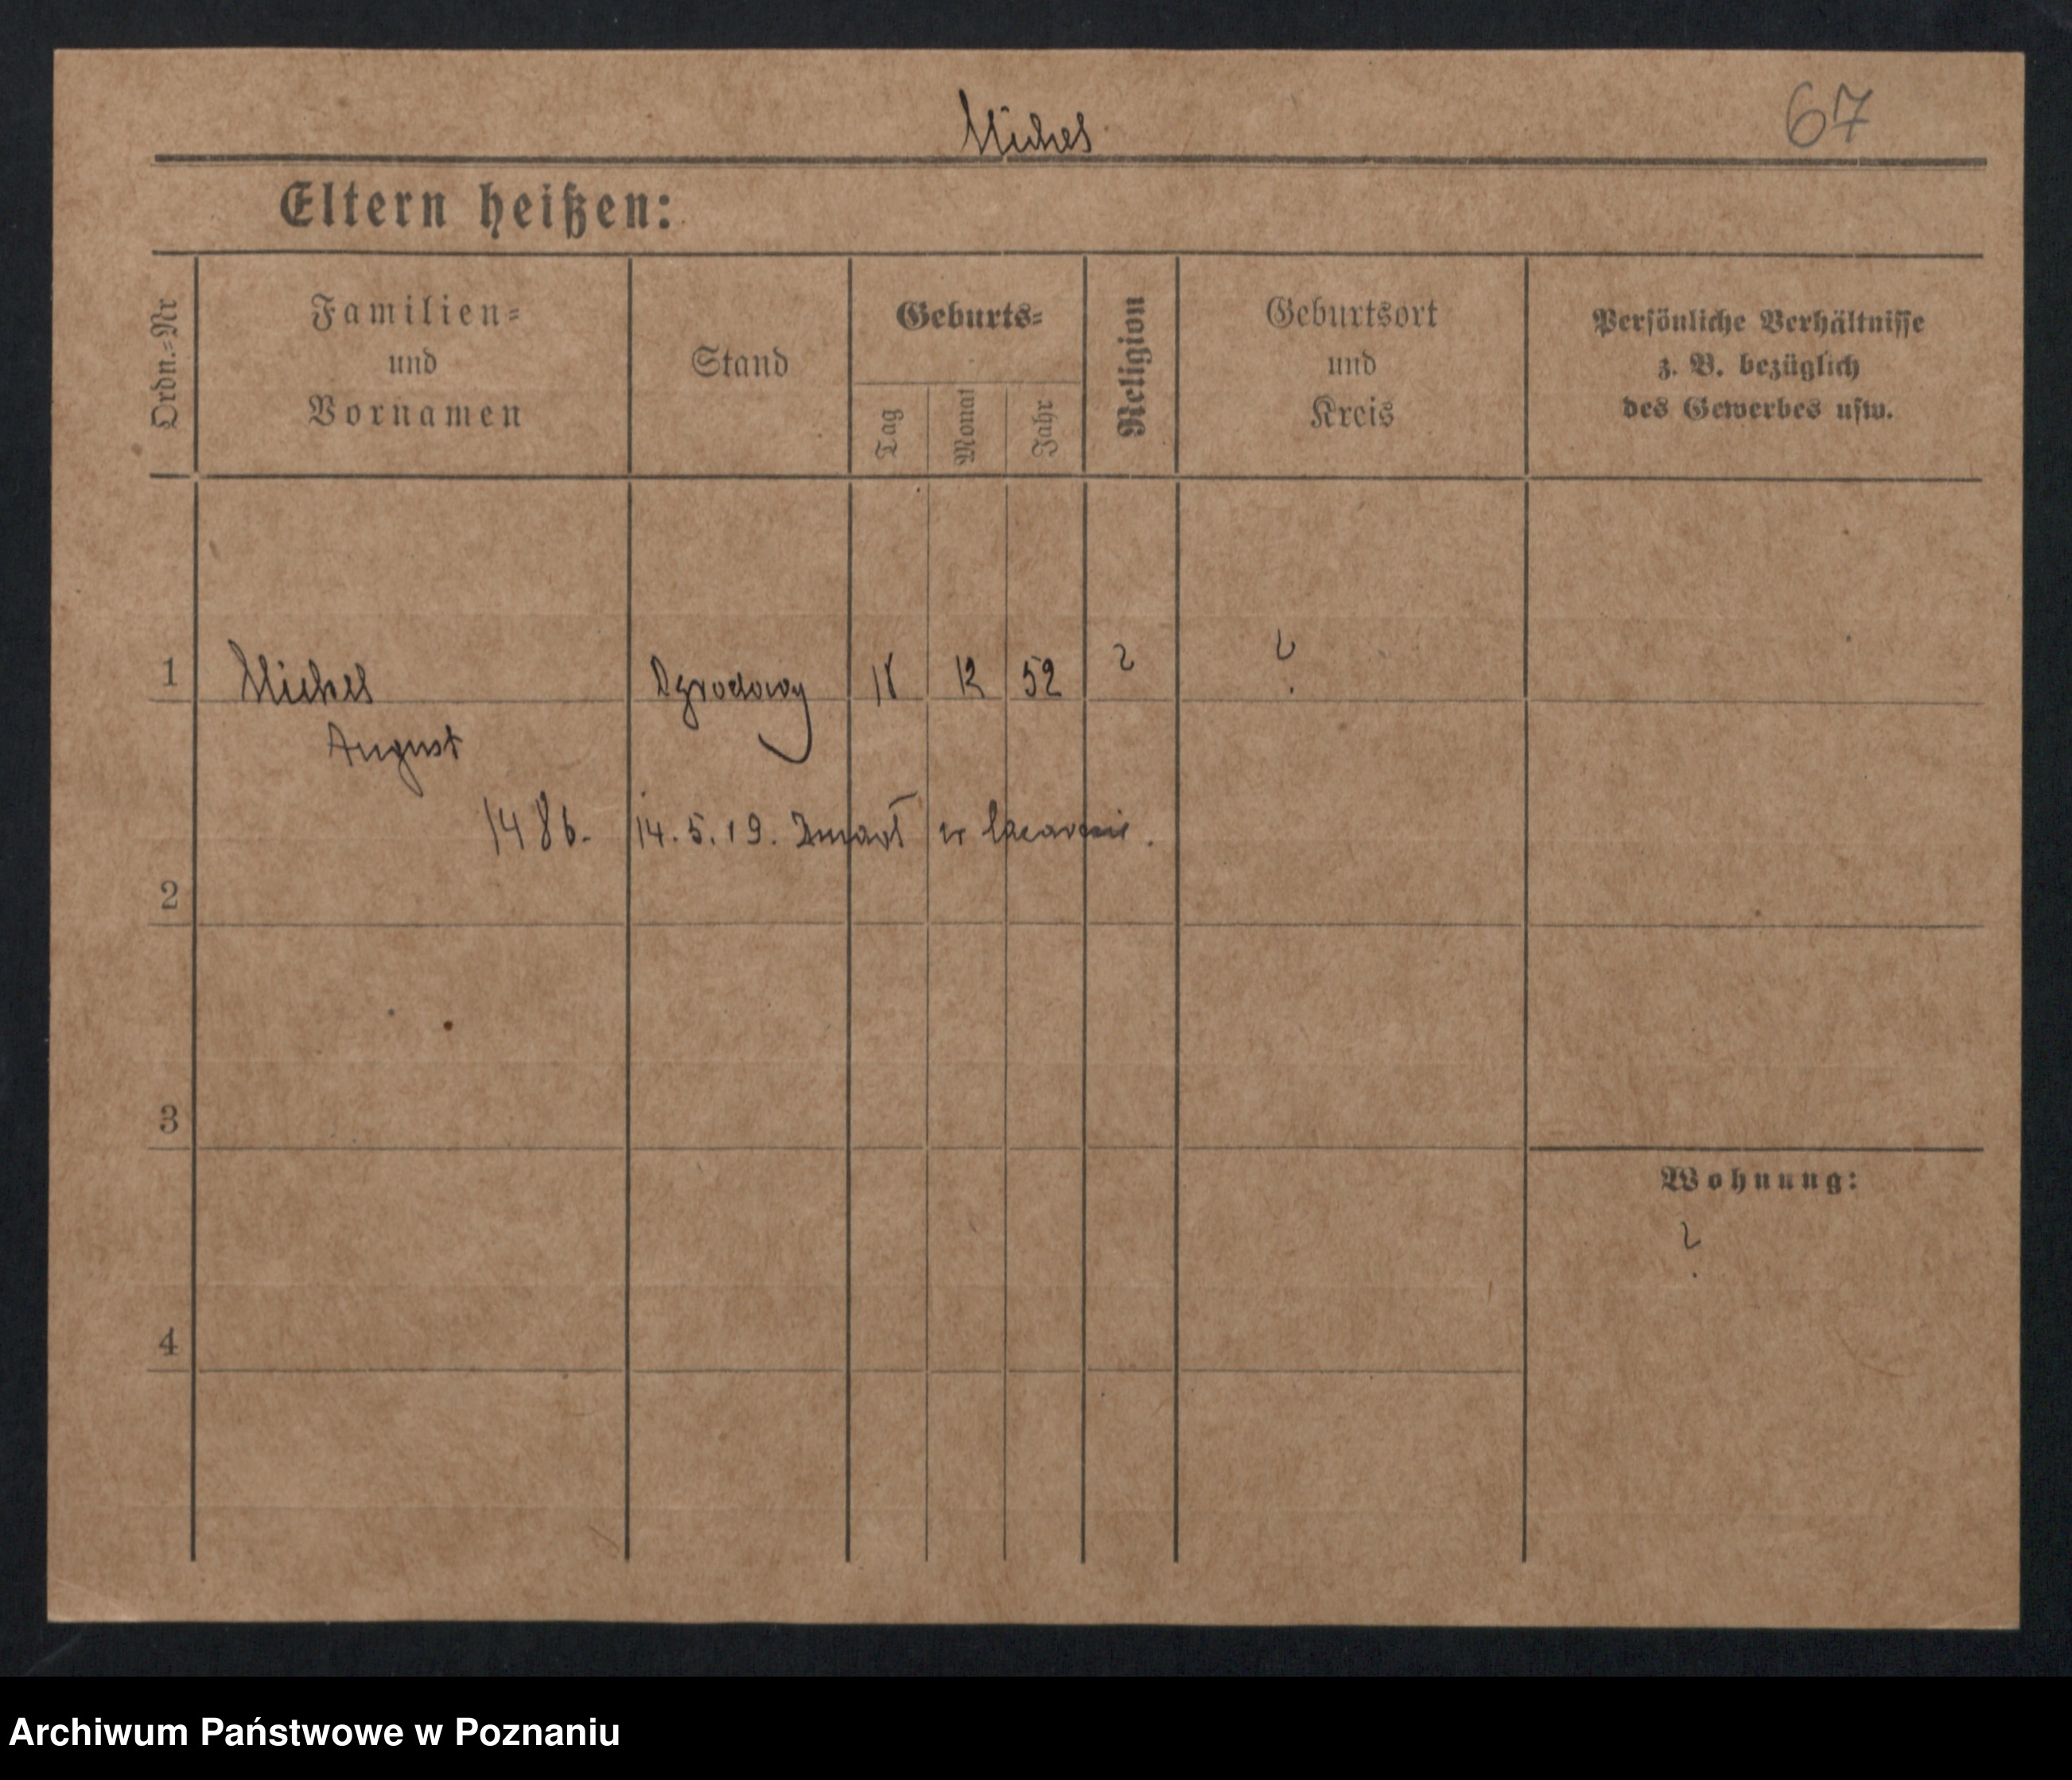 Michel
67
Eltern heißen:
Ordn.-Nr
Familien-
und
Vornamen
Stand
Geburts-
Tag
Monat
Jahr
Religion
Geburtsort
und
Kreis
Persönliche Verhältnisse
z. B. bezüglich
des Gewerbes usw.
1 Michel Ogrodowy 18 12 52 ? ?
August
1486. 14.5.19. Zmarł w
2
3
Wohnung:
?
4
Archiwum Państwowe w Poznaniu